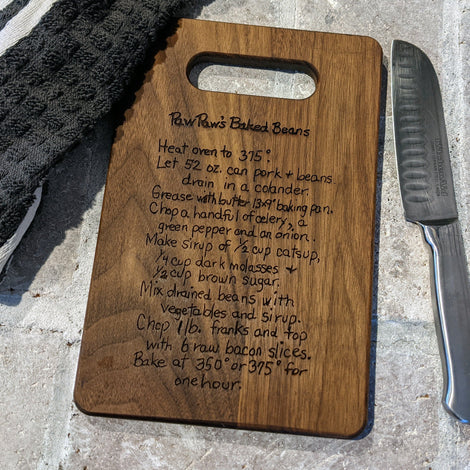 PawPaw's Baked Beans
Heat oven to 375°.
Let 52 oz. can pork + beans
drain in a colander.
Grease with butter 13x9" baking pan.
Chop a handful of celery, a
green pepper and an onion.
Make sirup of ½ cup catsup,
¼ cup dark molasses +
½ cup brown sugar.
Mix drained beans with
vegetables and sirup.
Chop 1 lb. franks and top
with 6 raw bacon slices.
Bake at 350° or 375° for
one hour.